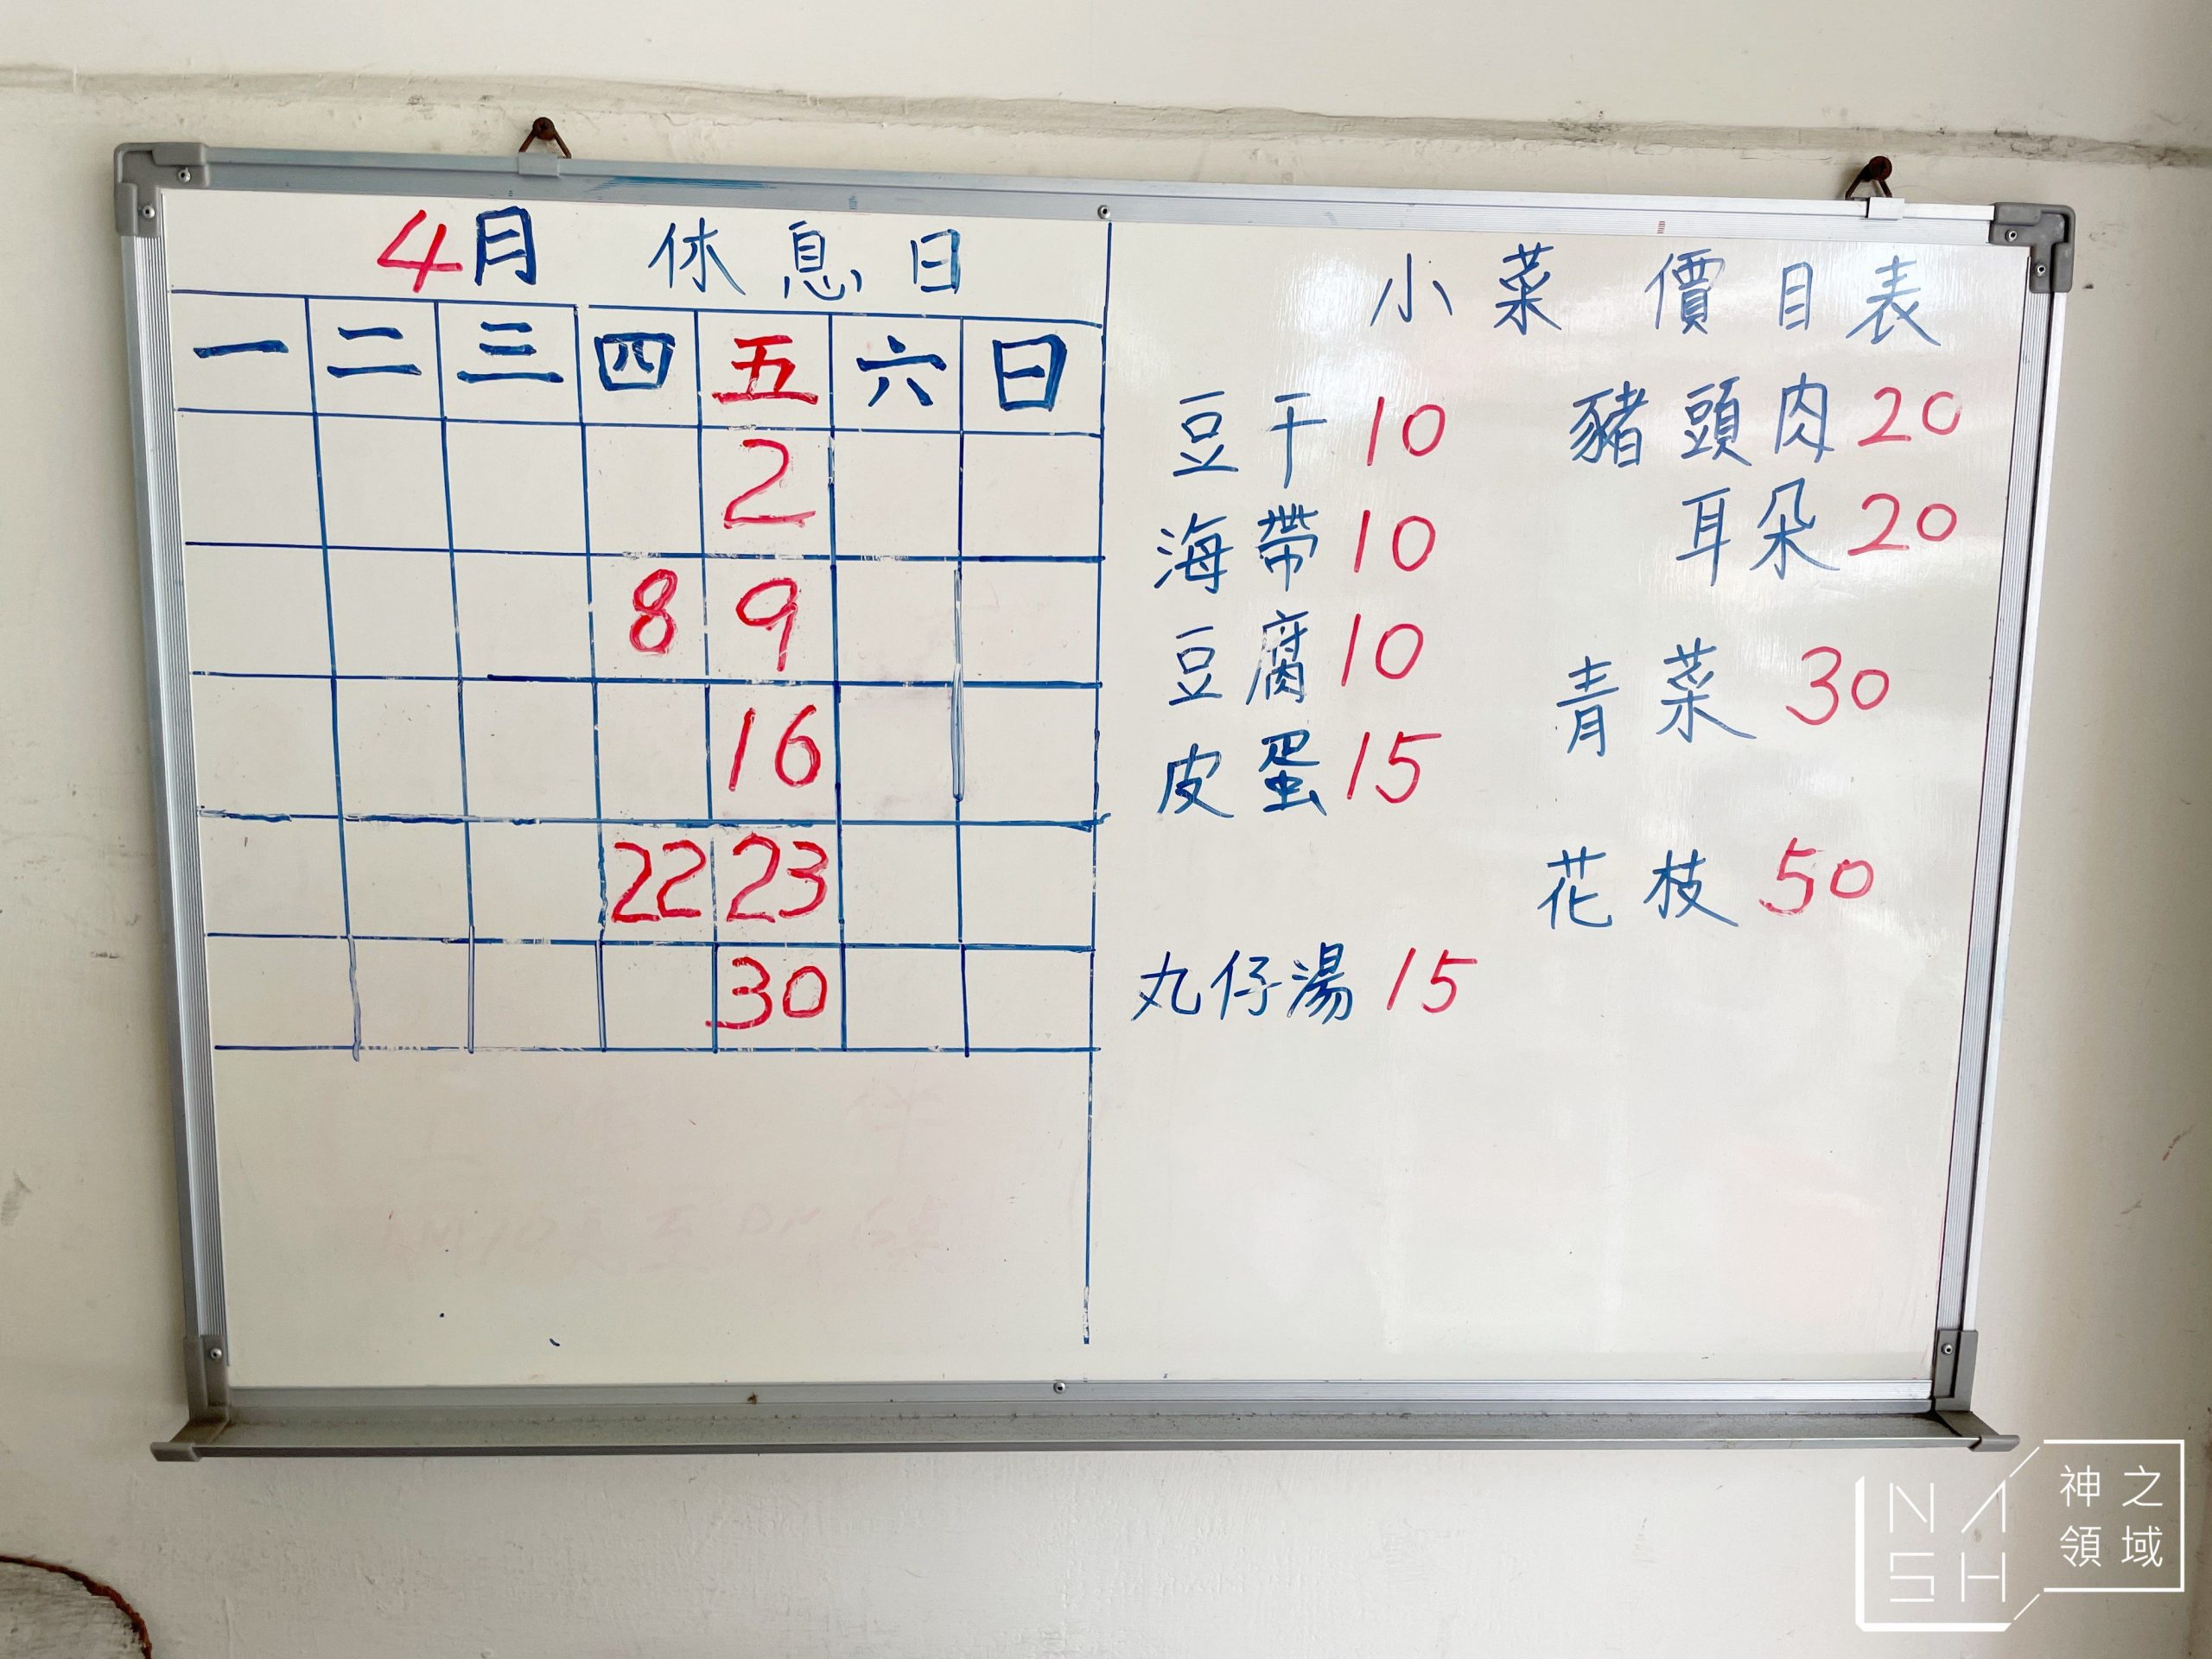 4月 休息日
一 二 三 四 五 六 日
2
8 9
16
22 23
30
小菜 價目表
豆干 10
海帶 10
豆腐 10
皮蛋 15
丸仔湯 15
豬頭肉 20
耳朵 20
青菜 30
花枝 50
NASH
神之
領域